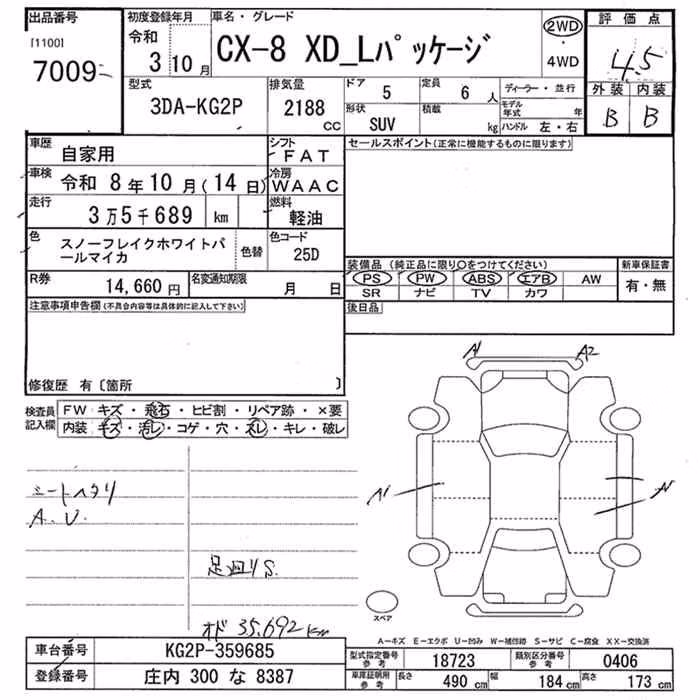 出品番号 [1100] 7009
初度登録年月 令和 3 10月
車名・グレード CX-8 XD_Lパッケージ
2WD・4WD
評価点 4.5
外装 内装
B B
型式 3DA-KG2P
排気量 2188 CC
ドア 5
定員 6 人
形状 SUV
積載 kg
ディーラー・並行
モデル年式 年
ハンドル 左・右
車歴 自家用
シフト FAT
車検 令和 8年10月(14日)
冷房 WAAC
走行 3万5千689 km
燃料 軽油
色 スノーフレイクホワイトパールマイカ
色替
色コード 25D
R券 14,660円
名変通知期限 月 日
セールスポイント(正常に機能するものに限ります)
装備品(純正品に限り○をつけてください)
新車保証書
PS PW ABS エアB AW
有・無
SR ナビ TV カワ
後日品
注意事項申告欄(不具合内容等は具体的に記入して下さい)
修復歴 有〔箇所 〕
検査員記入欄
FW キズ・飛石・ヒビ割・リペア跡・×要
内装 キズ・汚レ・コゲ・穴・スレ・キレ・破レ
A1 A2
シートヘタリ
A.U.
A1
足廻りS.
オド 35,692km
スペア
A-キズ E-エクボ U-凹み W-補修跡 S-サビ C-腐食 XX-交換済
車台番号 KG2P-359685
登録番号 庄内 300 な 8387
型式指定番号 参考 18723
類別区分番号 参考 0406
車庫証明用 参考 長さ 490 cm 幅 184 cm 高さ 173 cm